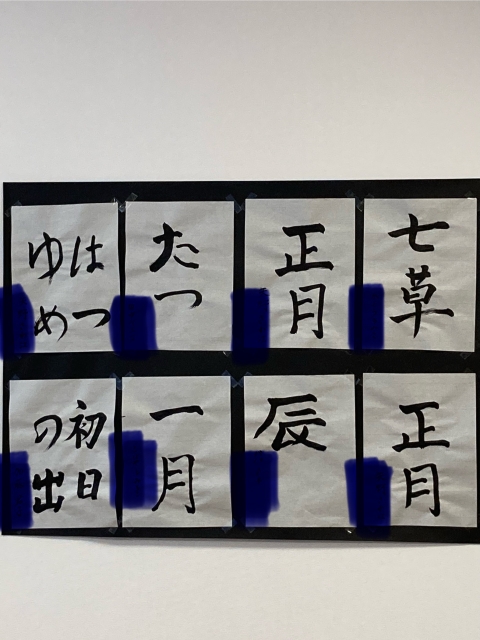 七草
正月
たつ
はつ
ゆめ
正月
辰
一月
初日
の出